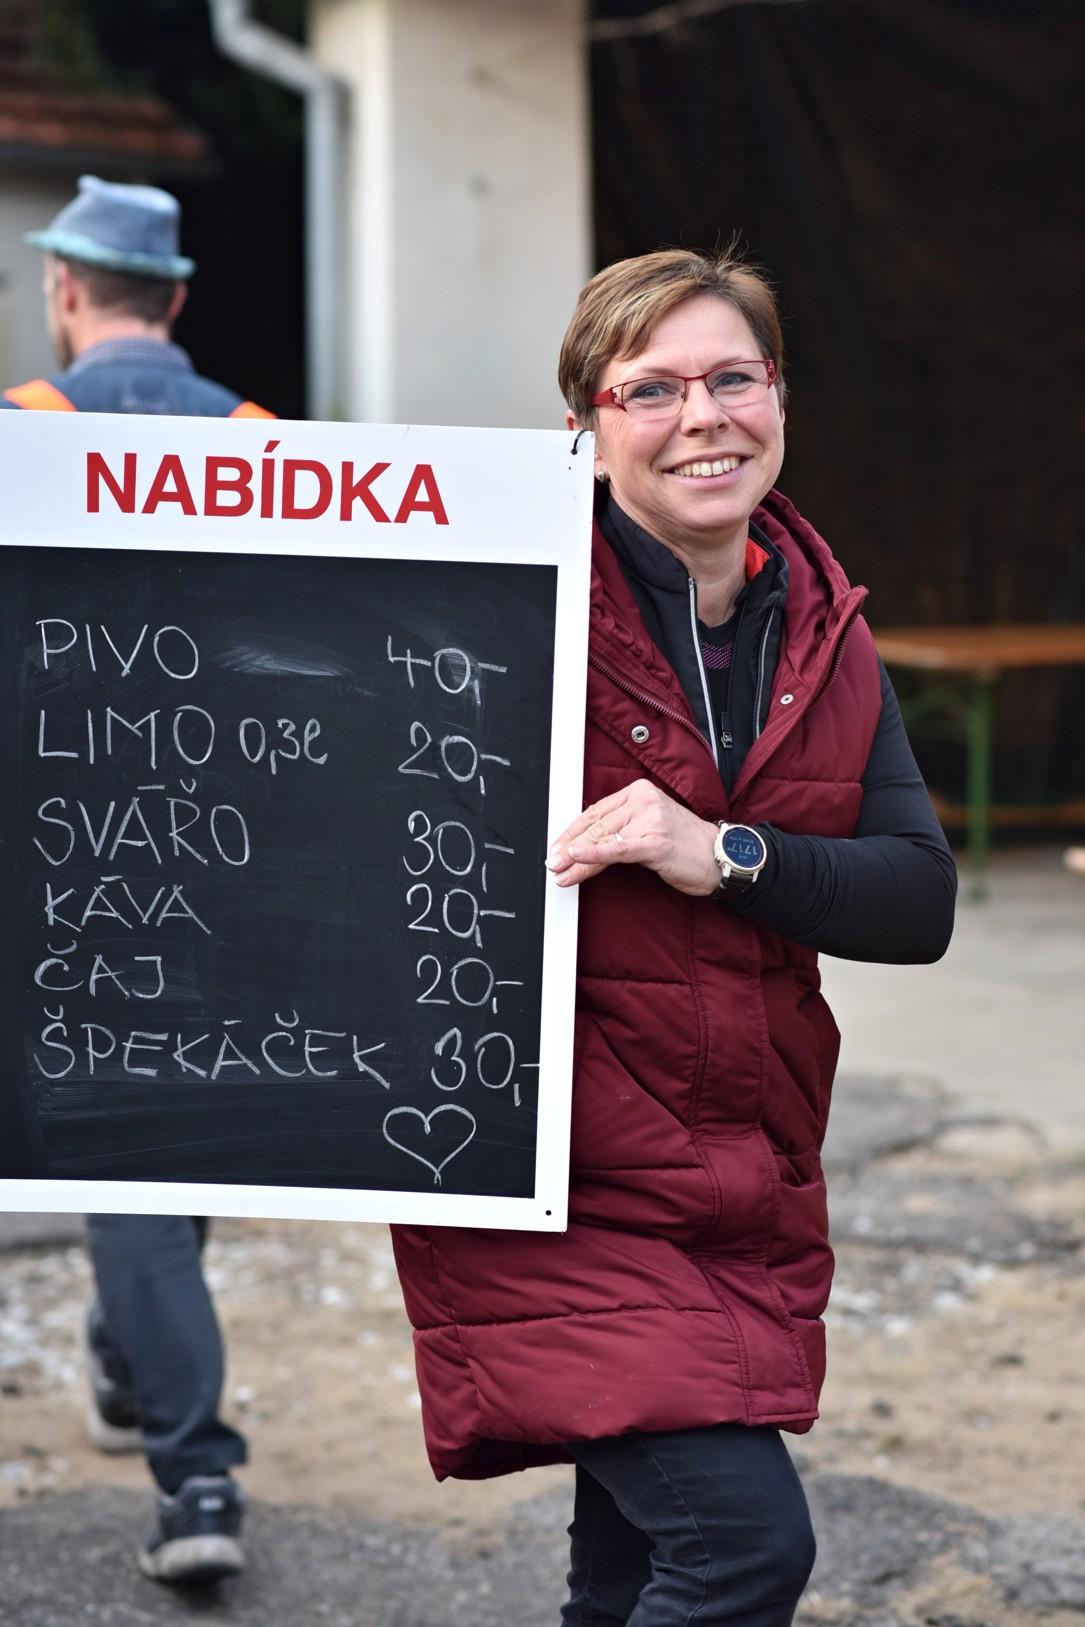 NABÍDKA
PIVO 40,-
LIMO 0,3l 20,-
SVÁŘO 30,-
KÁVA 20,-
ČAJ 20,-
ŠPEKÁČEK 30,-